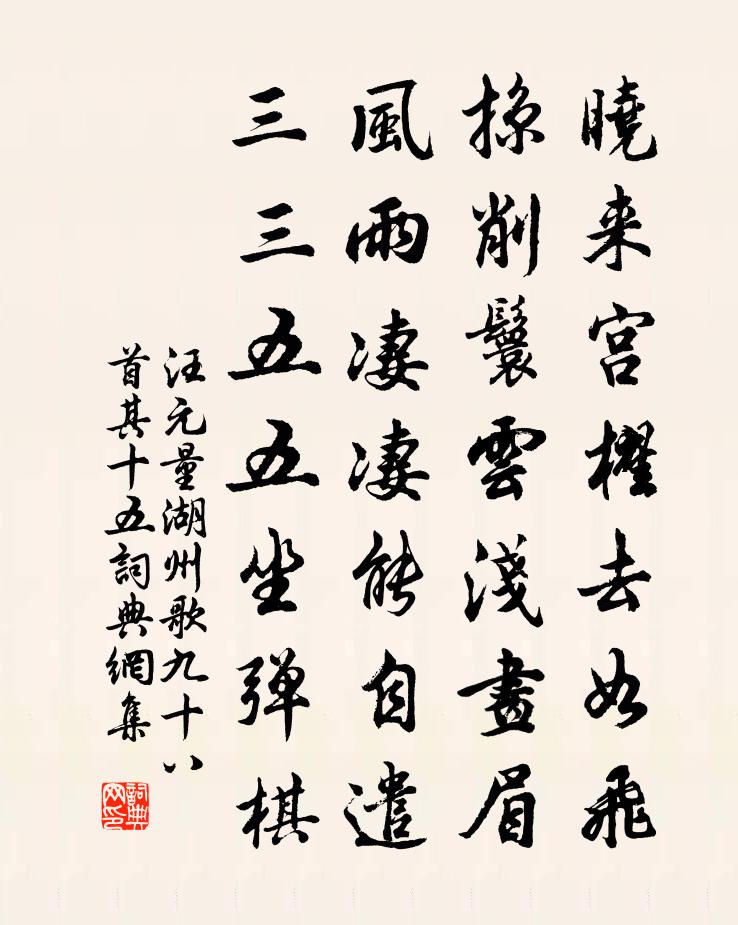 曉来宮櫂去如飛
掠削鬟雲淺畫眉
風雨凄凄能自遣
三三五五坐弹棋
汪元量湖州歌九十八
首其十五詞典網集
詞典
网印